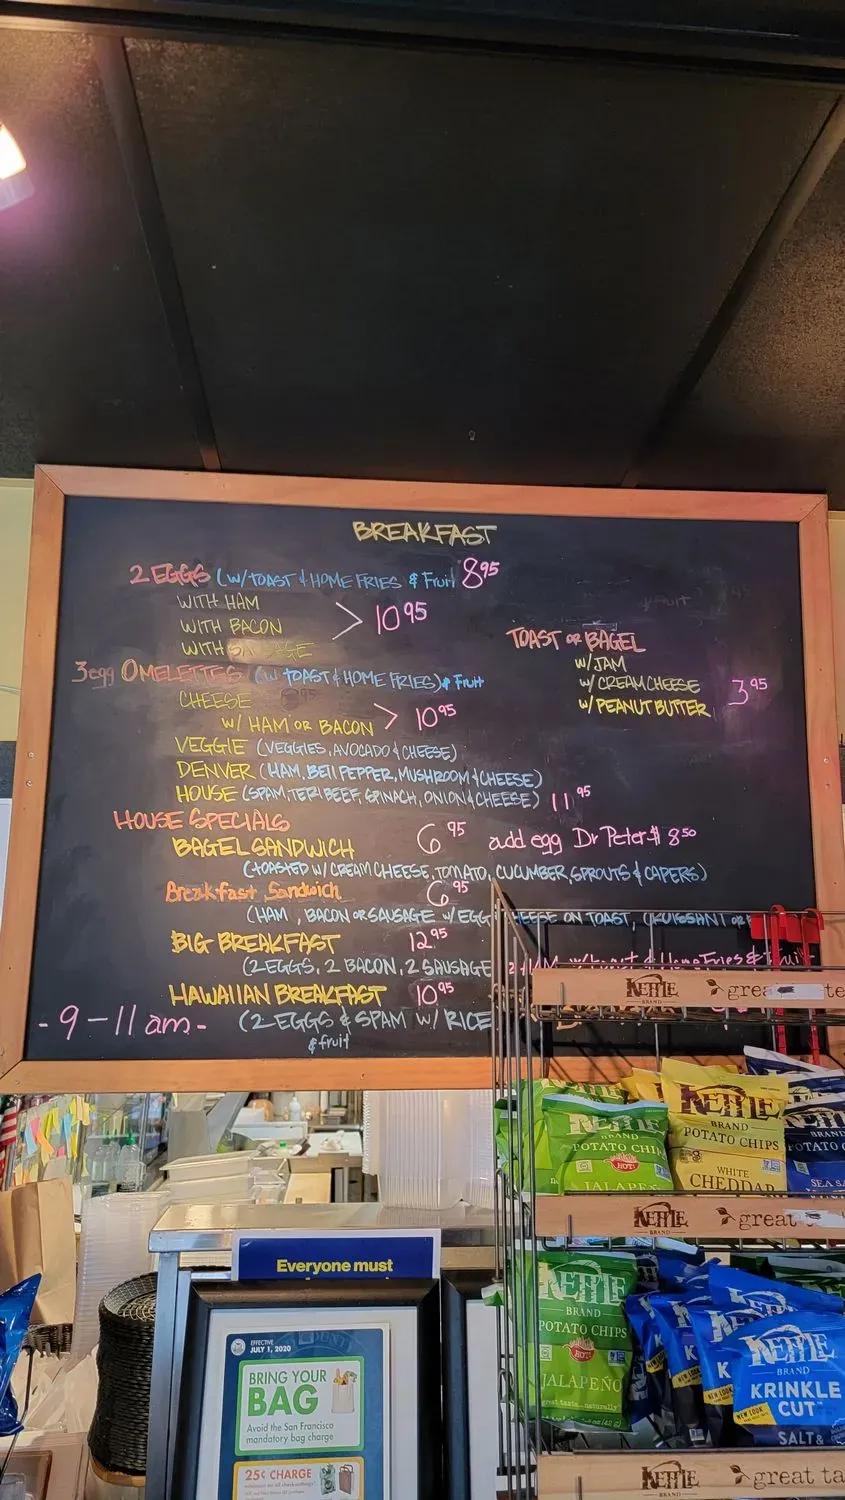 BREAKFAST
2 EGGS (W/TOAST & HOME FRIES & Fruit 8.95
WITH HAM
WITH BACON > 10.95
WITH SAUSAGE
TOAST OR BAGEL
W/JAM
W/CREAM CHEESE 3.95
W/PEANUT BUTTER
3egg OMELETTES (W/ TOAST & HOME FRIES) & Fruit
CHEESE
W/ HAM OR BACON > 10.95
VEGGIE (VEGGIES, AVOCADO & CHEESE)
DENVER (HAM, BELL PEPPER, MUSHROOM & CHEESE)
HOUSE (SPAM, TERI BEEF, SPINACH, ONION & CHEESE) 11.95
HOUSE SPECIALS
BAGEL SANDWICH 6.95 add egg Dr Peter $ 8.50
(TOASTED W/ CREAM CHEESE, TOMATO, CUCUMBER, SPROUTS & CAPERS)
Breakfast Sandwich 6.95
(HAM, BACON OR SAUSAGE W/EGG CHEESE ON TOAST, CROISSANT OR
BIG BREAKFAST 12.95
(2 EGGS, 2 BACON, 2 SAUSAGE w/toast & Home Fries & Fruit
HAWAIIAN BREAKFAST 10.95
(2 EGGS & SPAM W/ RICE
& fruit
- 9 - 11 am -
KETTLE BRAND great
KETTLE
BRAND
POTATO CHI
HOT!
JALAPE
KETTLE
BRAND
POTATO CHIPS
WHITE
CHEDDAR
BRAND
POTATO C
SEA SA
KETTLE BRAND great
KETTLE
BRAND
POTATO CHIPS
HOT!
JALAPEÑO
great taste...naturally
NEW LOOK
KETTLE
BRAND
KRINKLE
CUT
NEW LOOK
SALT &
KETTLE BRAND great ta
Everyone must
EFFECTIVE
JULY 1, 2020
BRING YOUR
BAG
Avoid the San Francisco
mandatory bag charge
25¢ CHARGE